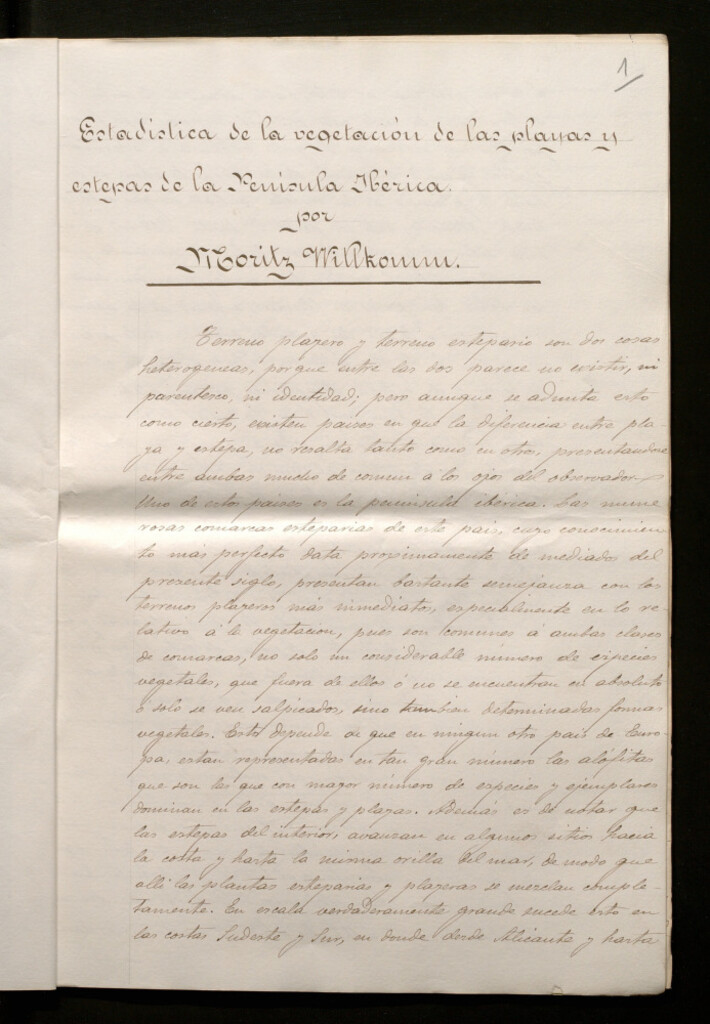 1
Estadística de la vegetación de las playas y
estepas de la Península Ibérica.
por
Moritz Willkomm.
Terreno playero y terreno estepario son dos cosas
heterogeneas, porque entre las dos parece no existir, ni
parentesco, ni identidad; pero aunque se admita esto
como cierto, existen paises en que la diferencia entre pla-
ya y estepa, no resalta tanto como en otros, presentandose
entre ambas mucho de comun a los ojos del observador.
Uno de estos paises es la peninsula ibérica. Las nume
rosas comarcas esteparias de este pais, cuyo conocimien-
to mas perfecto data proximamente de mediados del
presente siglo, presentan bastante semejanza con los
terrenos playeros más inmediatos, especialmente en lo re-
lativo á la vegetacion, pues son comunes á ambas clases
de comarcas, no solo un considerable número de especies
vegetales, que fuera de ellos ó no se encuentran en absoluto
ó solo se ven salpicados, sino tambien determinadas formas
vegetales. Esto depende de que en ningun otro pais de Euro-
pa, estan representadas en tan gran número las alófitas
que son las que con mayor número de especies y ejemplares
dominan en las estepas y playas. Además es de notar que
las estepas del interior, avanzan en algunos sitios hacia
la costa y hasta la misma orilla del mar, de modo que
alli las plantas esteparias y playeras se mezclan comple-
tamente. En escala verdaderamente grande sucede esto en
las costas Sudeste y Sur, en donde desde Alicante y hasta